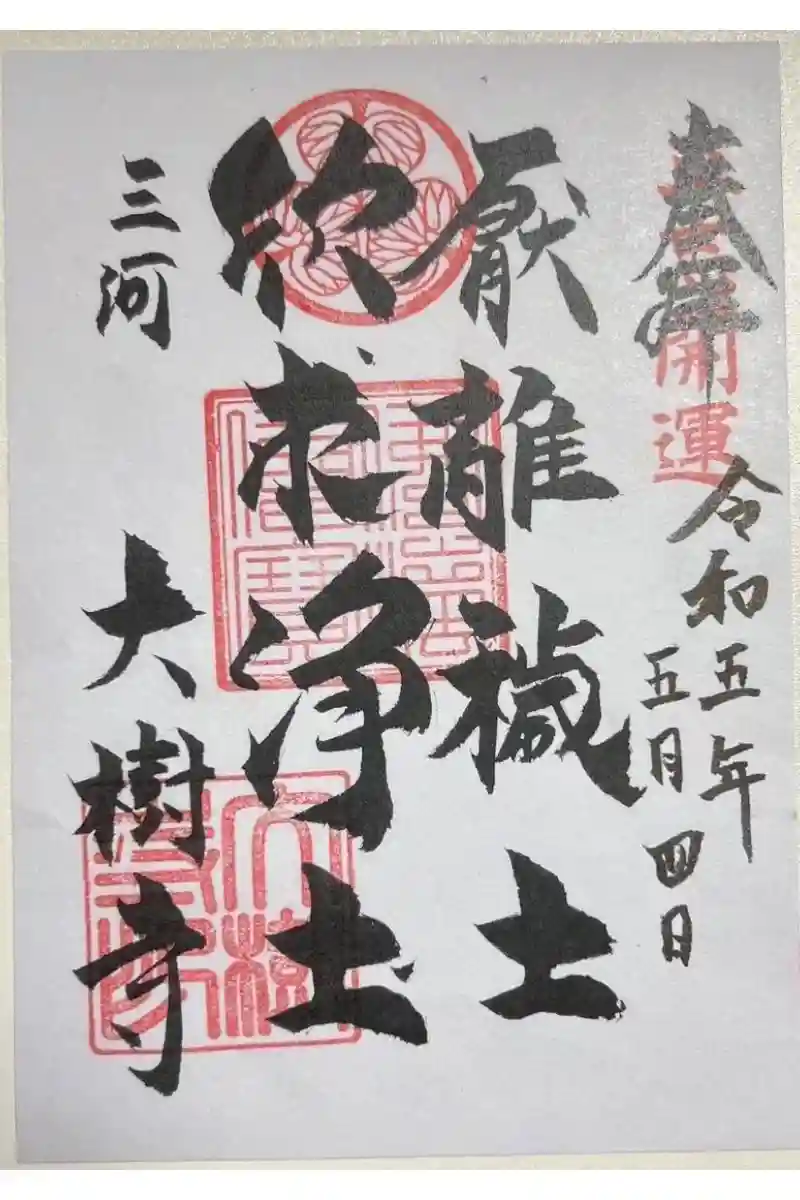 奉拝
開運
令和五年
五月四日
厭離穢土
欣求浄土
三河
大樹寺